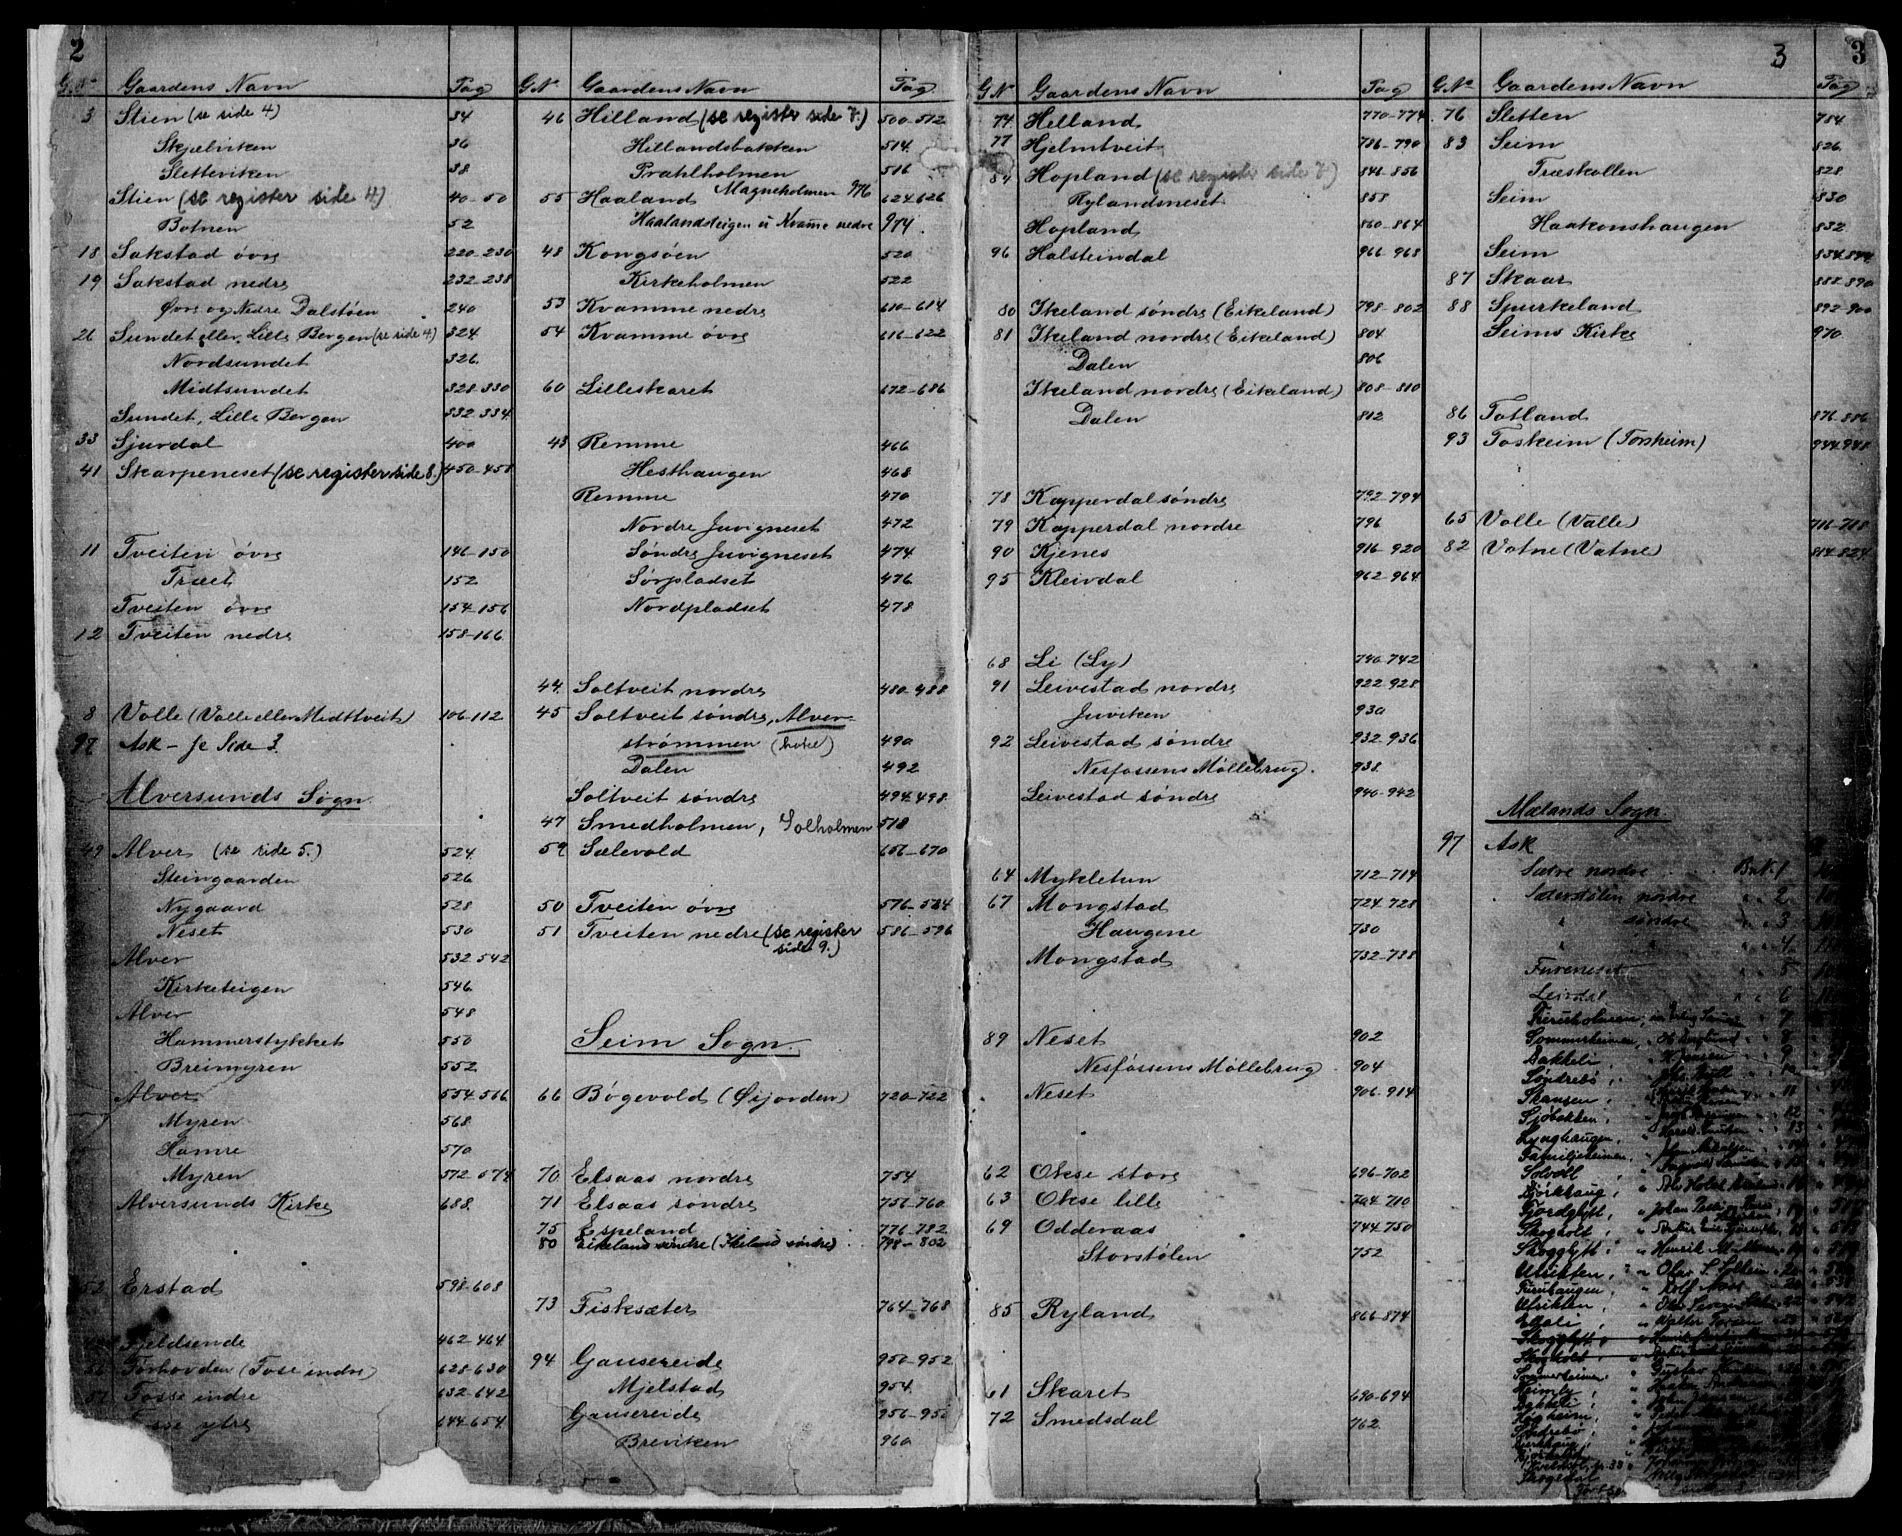 2
G.Nº Gaardens Navn Pag
3 Stien (se side 4) 34
Skjælviken 36
Sletteviken 38
Stien (se register side 4) 40-50
Botnen 52
18 Sakstad övre 220-230
19 Sakstad nedre 232-238
Övre og Nedre Dalstöen 240
26 Sundet eller Lille Bergen (se side 4) 324
Nordsundet 326
Midtsundet 328-330
Sundet, Lille Bergen 332-334
33 Sjurdal 400
41 Skarpeneset (se register side 8.) 450-458
11 Tveiten övre 146-150
Træet 152
Tveiten övre 154-156
12 Tveiten nedre 158-166
8 Volle (Valle eller Midttveit) 106-112
97 Ask - se Side 3.
Alversunds Sogn
49 Alver (se side 5.) 524
Steingaarden 526
Nygaard 528
Neset 530
Alver 532-542
Kirketeigen 546
Alver 548
Hammerstykket 550
Breimyren 552
Alver 554-566
Myren 568
Hamre 570
Myren 572-574
Alversunds Kirke 688
52 Erstad 598-608
Fjeldsende 462-464
56 Forhovden (Fose indre) 628-630
57 Fosse indre 632-642
Fosse ytre 644-654
G.Nº Gaardens Navn Pag
46 Hilland (se register side 7.) 500-512
Hillandsbakken 514
Prahlholmen 516
Magneholmen 976
55 Haaland 624-626
Haalandsteigen u Kvamme nedre 974.
48 Kongsöen 520
Kirkeholmen 522
53 Kvamme nedre 610-614
54 Kvamme övre 616-622
60 Lilleskaret 672-686
43 Remme 466
Hesthaugen 468
Remme 470
Nordre Juvigneset 472
Söndre Juvigneset 474
Sörpladset 476
Nordpladset 478
44 Soltveit nordre 480-488
45 Soltveit söndre, Alver-
strömmen 490
Dalen 492
Soltveit söndre 494-498
47 Smedholmen, Solholmen 518
59 Sælevold 656-670
50 Tveiten övre 576-584
51 Tveiten nedre (se register side 9.) 586-596
Seim Sogn.
66 Bögevold (Öijorden) 720-722
70 Elsaas nordre 754
71 Elsaas söndre 756-760
75 Espeland 776-782
80 Eikeland söndre (Ikeland söndre) 798-802
73 Fiskesæter 764-768
94 Gausereide 950-952
Mjelstad 954
Gausereide 956-958
Breviken 960
3 3
G.Nº Gaardens Navn Pag
74 Helland 770-774
77 Hjelmtveit 786-790
84 Hopland (se register side 7.) 846-856
Rylandsneset 858
Hopland 860-864
96 Halsteindal 966-968
80 Ikeland söndre (Eikeland) 798-802
81 Ikeland nordre (Eikeland) 804
Dalen 806
Ikeland nordre (Eikeland) 808-810
Dalen 812
78 Kapperdal söndre 792-794
79 Kapperdal nordre 796
90 Kjenes 916-920
95 Kleivdal 962-964
68 Li (Ly) 740-742
91 Leivestad nordre 922-928
Juviken 930
92 Leivestad söndre 932-936
Nesfossens Möllebrug. 938
Leivestad söndre 940-942
64 Mykletun 712-714
67 Mongstad 724-728
Haugene 730
Mongstad 732-738
89 Neset 902
Nesfossens Möllebrug 904
Neset 906-914
62 Okse store 696-702
63 Okse lille 704-710
69 Odderaas 744-750
Storstölen 752
85 Ryland 866-874
61 Skaret 690-694
72 Smedsdal 762
G.Nº Gaardens Navn Pag
76 Sletten 784
83 Seim 826
Træskollen 828
Seim 830
Haakonshaugen 832
Seim 834-844
87 Skaar 888-890
88 Spurkeland 892-900
Seims Kirke 970
86 Totland 876-886
93 Toskeim (Torsheim) 944-948
65 Volle (Valle) 716-718
82 Votne (Vatne) 814-824
Mælands Sogn.
97 Ask
Sætre nordre Brk. 1
Sæterstölen nordre " " 2
" söndre " " 3
" " " " 4
Fureneset " " 5
Leirdal " " 6
Furuholmen, 7
Sommerheimen, 8
Bakkeli 9
Söndrebö,
Skansen, 11
Sjöbakken, 12
Lynghaugen, 13
Familjeheimen,
Solvoll
Björkhaug,
Fjordglytt, Johan
Skogholt,
Skogglytt, Henrik
Ulrikken, Olav S.
Furuhaugen, Rolf
Ulrikken,
Eitoli, Walter
Skogglytt
Skogholt,
Sommerheimen Gustav
Heimly,
Bakkeli,
Haugheim,
Söndrebö
Skogedal